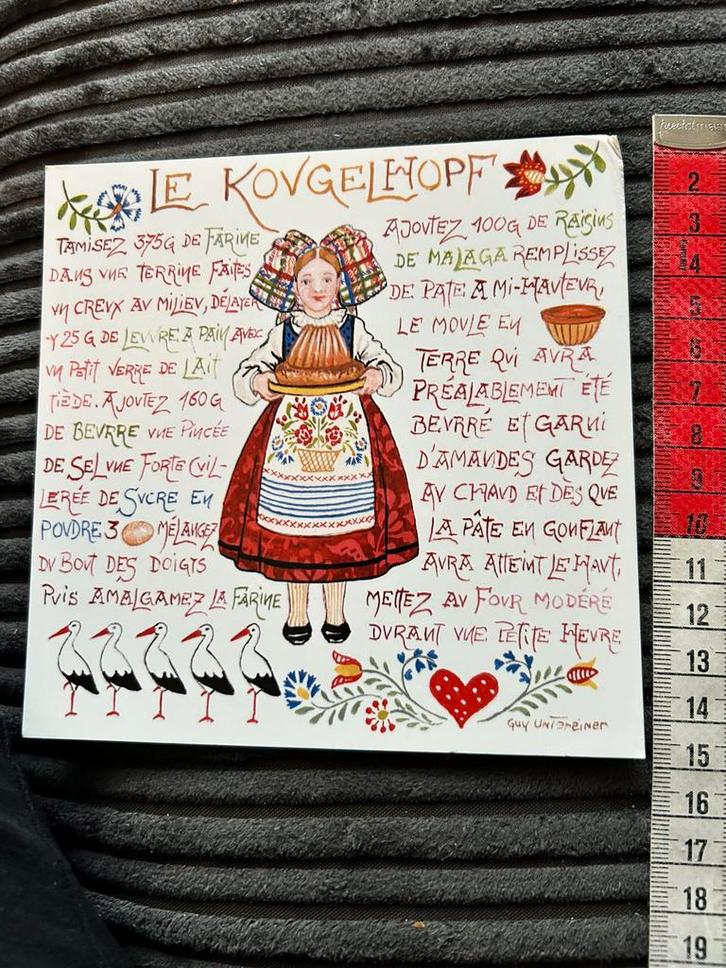 LE KOVGELHOPF
TAMISEZ 375G DE FARINE
DANS VNE TERRINE FAITES
VN CREVX AV MILIEV, DÉLAYER
-Y 25 G DE LEVVRE A PAIN AVEC
VN PETIT VERRE DE LAIT
TIÈDE. AJOVTEZ 160G
DE BEVRRE VNE PINCÉE
DE SEL VNE FORTE CVIL-
LERÉE DE SVCRE EN
POVDRE 3 MÉLANGEZ
DV BOVT DES DOIGTS
PVIS AMALGAMEZ LA FARINE
AJOVTEZ 100G DE RAISINS
DE MALAGA REMPLISSEZ
DE PATE A MI-HAVTEVR,
LE MOVLE EN
TERRE QVI AVRA
PRÉALABLEMENT ÉTÉ
BEVRRÉ ET GARNI
D'AMANDES GARDEZ
AV CHAVD ET DÈS QVE
LA PÂTE EN GONFLANT
AVRA ATTEINT LE HAVT,
METTEZ AV FOVR MODÉRÉ
DVRANT VNE PETITE HEVRE
GUY UNTEREINER
2
3
4
5
6
7
8
9
10
11
12
13
14
15
16
17
18
19